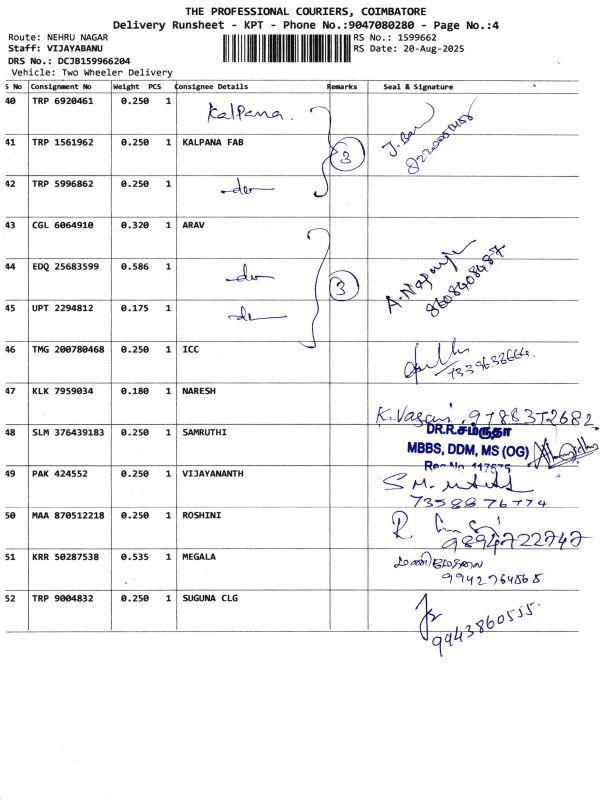 THE PROFESSIONAL COURIERS, COIMBATORE
Delivery Runsheet - KPT - Phone No.:9047080280 - Page No.:4
Route: NEHRU NAGAR RS No.: 1599662
Staff: VIJAYABANU RS Date: 20-Aug-2025
DRS No.: DCJB159966204
Vehicle: Two Wheeler Delivery
S No Consignment No Weight PCS Consignee Details Remarks Seal & Signature
40 TRP 6920461 0.250 1 Kalpana.
41 TRP 1561962 0.250 1 KALPANA FAB 3
42 TRP 5996862 0.250 1
43 CGL 6064910 0.320 1 ARAV
44 EDQ 25683599 0.586 1 3
45 UPT 2294812 0.175 1
46 TMG 200780468 0.250 1 ICC
47 KLK 7959034 0.180 1 NARESH
48 SLM 376439183 0.250 1 SAMRUTHI DR.R.சம்ருதா
MBBS, DDM, MS (OG)
Reg No. 117575
49 PAK 424552 0.250 1 VIJAYANANTH
7358876774
50 MAA 870512218 0.250 1 ROSHINI
9894722747
51 KRR 50287538 0.535 1 MEGALA
52 TRP 9004832 0.250 1 SUGUNA CLG
9943860555.